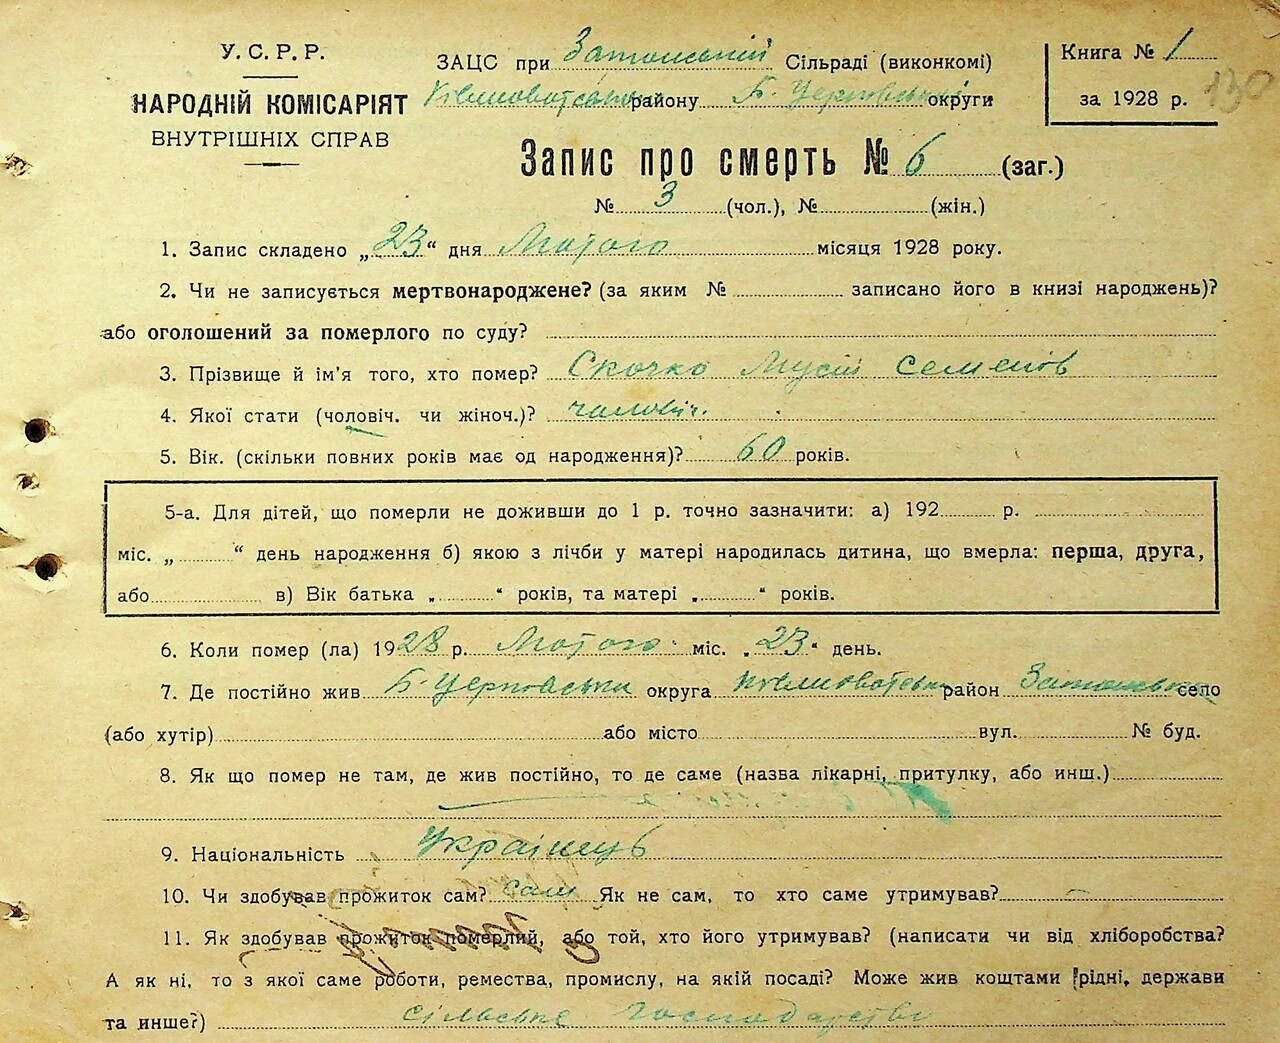 У. С. Р. Р.
НАРОДНІЙ КОМІСАРІЯТ
ВНУТРІШНІХ СПРАВ
ЗАЦС при Затонській Сільраді (виконкомі)
району Б. Церковської округи
Книга № 1
за 1928 р.
130
Запис про смерть № 6 (заг.)
№ 3 (чол.), № (жін.)
1. Запис складено „23“ дня Лютого місяця 1928 року.
2. Чи не записується мертвонароджене? (за яким № записано його в книзі народжень)?
або оголошений за померлого по суду?
3. Прізвище й ім'я того, хто помер? Скочко Мусій Семенов
4. Якої стати (чоловіч. чи жіноч.)? чоловіч.
5. Вік. (скільки повних років має од народження)? 60 років.
5-а. Для дітей, що померли не доживши до 1 р. точно зазначити: а) 192 р.
міс. „ “ день народження б) якою з лічби у матері народилась дитина, що вмерла: перша, друга,
або в) Вік батька „ “ років, та матері „ “ років.
6. Коли помер (ла) 1928 р. Лютого міс. „23“ день.
7. Де постійно жив Б-Церковська округа район село
(або хутір) або місто вул. № буд.
8. Як що помер не там, де жив постійно, то де саме (назва лікарні, притулку, або инш.)
9. Національність Українець
10. Чи здобував прожиток сам? сам Як не сам, то хто саме утримував? –
11. Як здобував прожиток померлий, або той, хто його утримував? (написати чи від хліборобства?
А як ні, то з якої саме роботи, ремества, промислу, на якій посаді? Може жив коштами рідні, держави
та инше?) сільське господарство